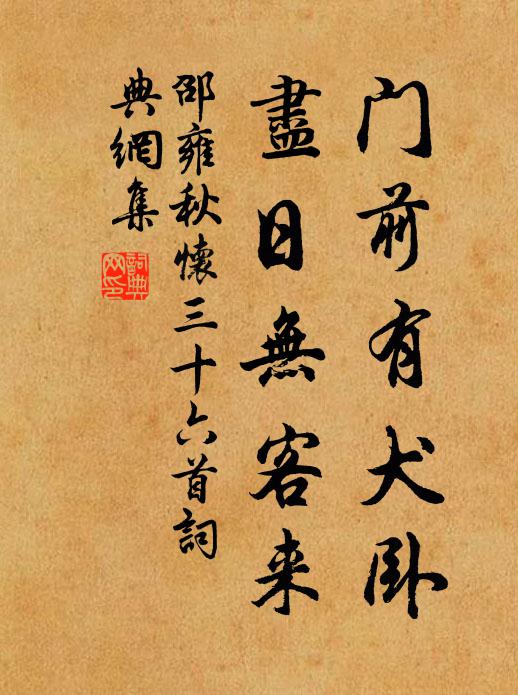 门前有犬卧
盡日無客来
邵雍秋懷三十六首詞
典網集
詞典
网印